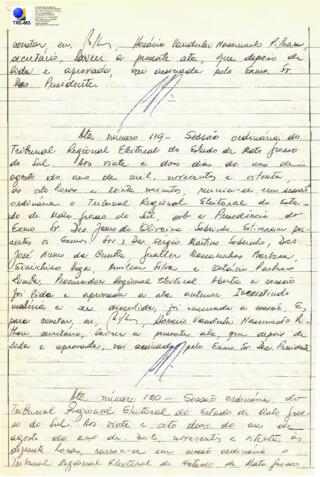 TRE-MS
constar, eu, Horácio Vanderlei Nascimento Pithan,
secretário, lavrei a presente ata, que depois de
lida e aprovada, vai assinada pelo Exmo. Sr.
Des. Presidente
Ata número 119 - Sessão ordinária do
Tribunal Regional Eleitoral do Estado de Mato Grosso
do Sul. Aos vinte e dois dias do mês de
agosto do ano de mil, novecentos e oitenta,
às oito horas e trinta minutos, reuniu-se em sessão
ordinária o Tribunal Regional Eleitoral do Esta-
do de Mato Grosso do Sul, sob a Presidência do
Exmo Sr Des. de Oliveira Estiveram pre-
sentes os Exmos. Srs: Des Sergio Martins Sobrinho, Des.
José Nunes da Cunha, Mascarenhas Barbosa,
Silva e Otávio Pacheco
Procurador Regional Eleitoral. Aberta a sessão
foi lida e aprovada a ata anterior. Inexistindo
matéria a ser discutida, foi encerrada a sessão. E,
para constar, eu, Horácio Vanderlei Nascimento Pi-
than, secretário, lavrei a presente ata, que depois de
lida e aprovada, vai assinada pelo Exmo Sr Des. Presidente
Ata número 120 - Sessão ordinária do
Tribunal Regional Eleitoral do Estado de Mato Gros-
so do Sul. Aos vinte e oito dias do mês de
agosto do ano de mil, novecentos e oitenta, às
dezesete horas, reuniu-se em sessão ordinária o
Tribunal Regional Eleitoral do Estado de Mato Grosso